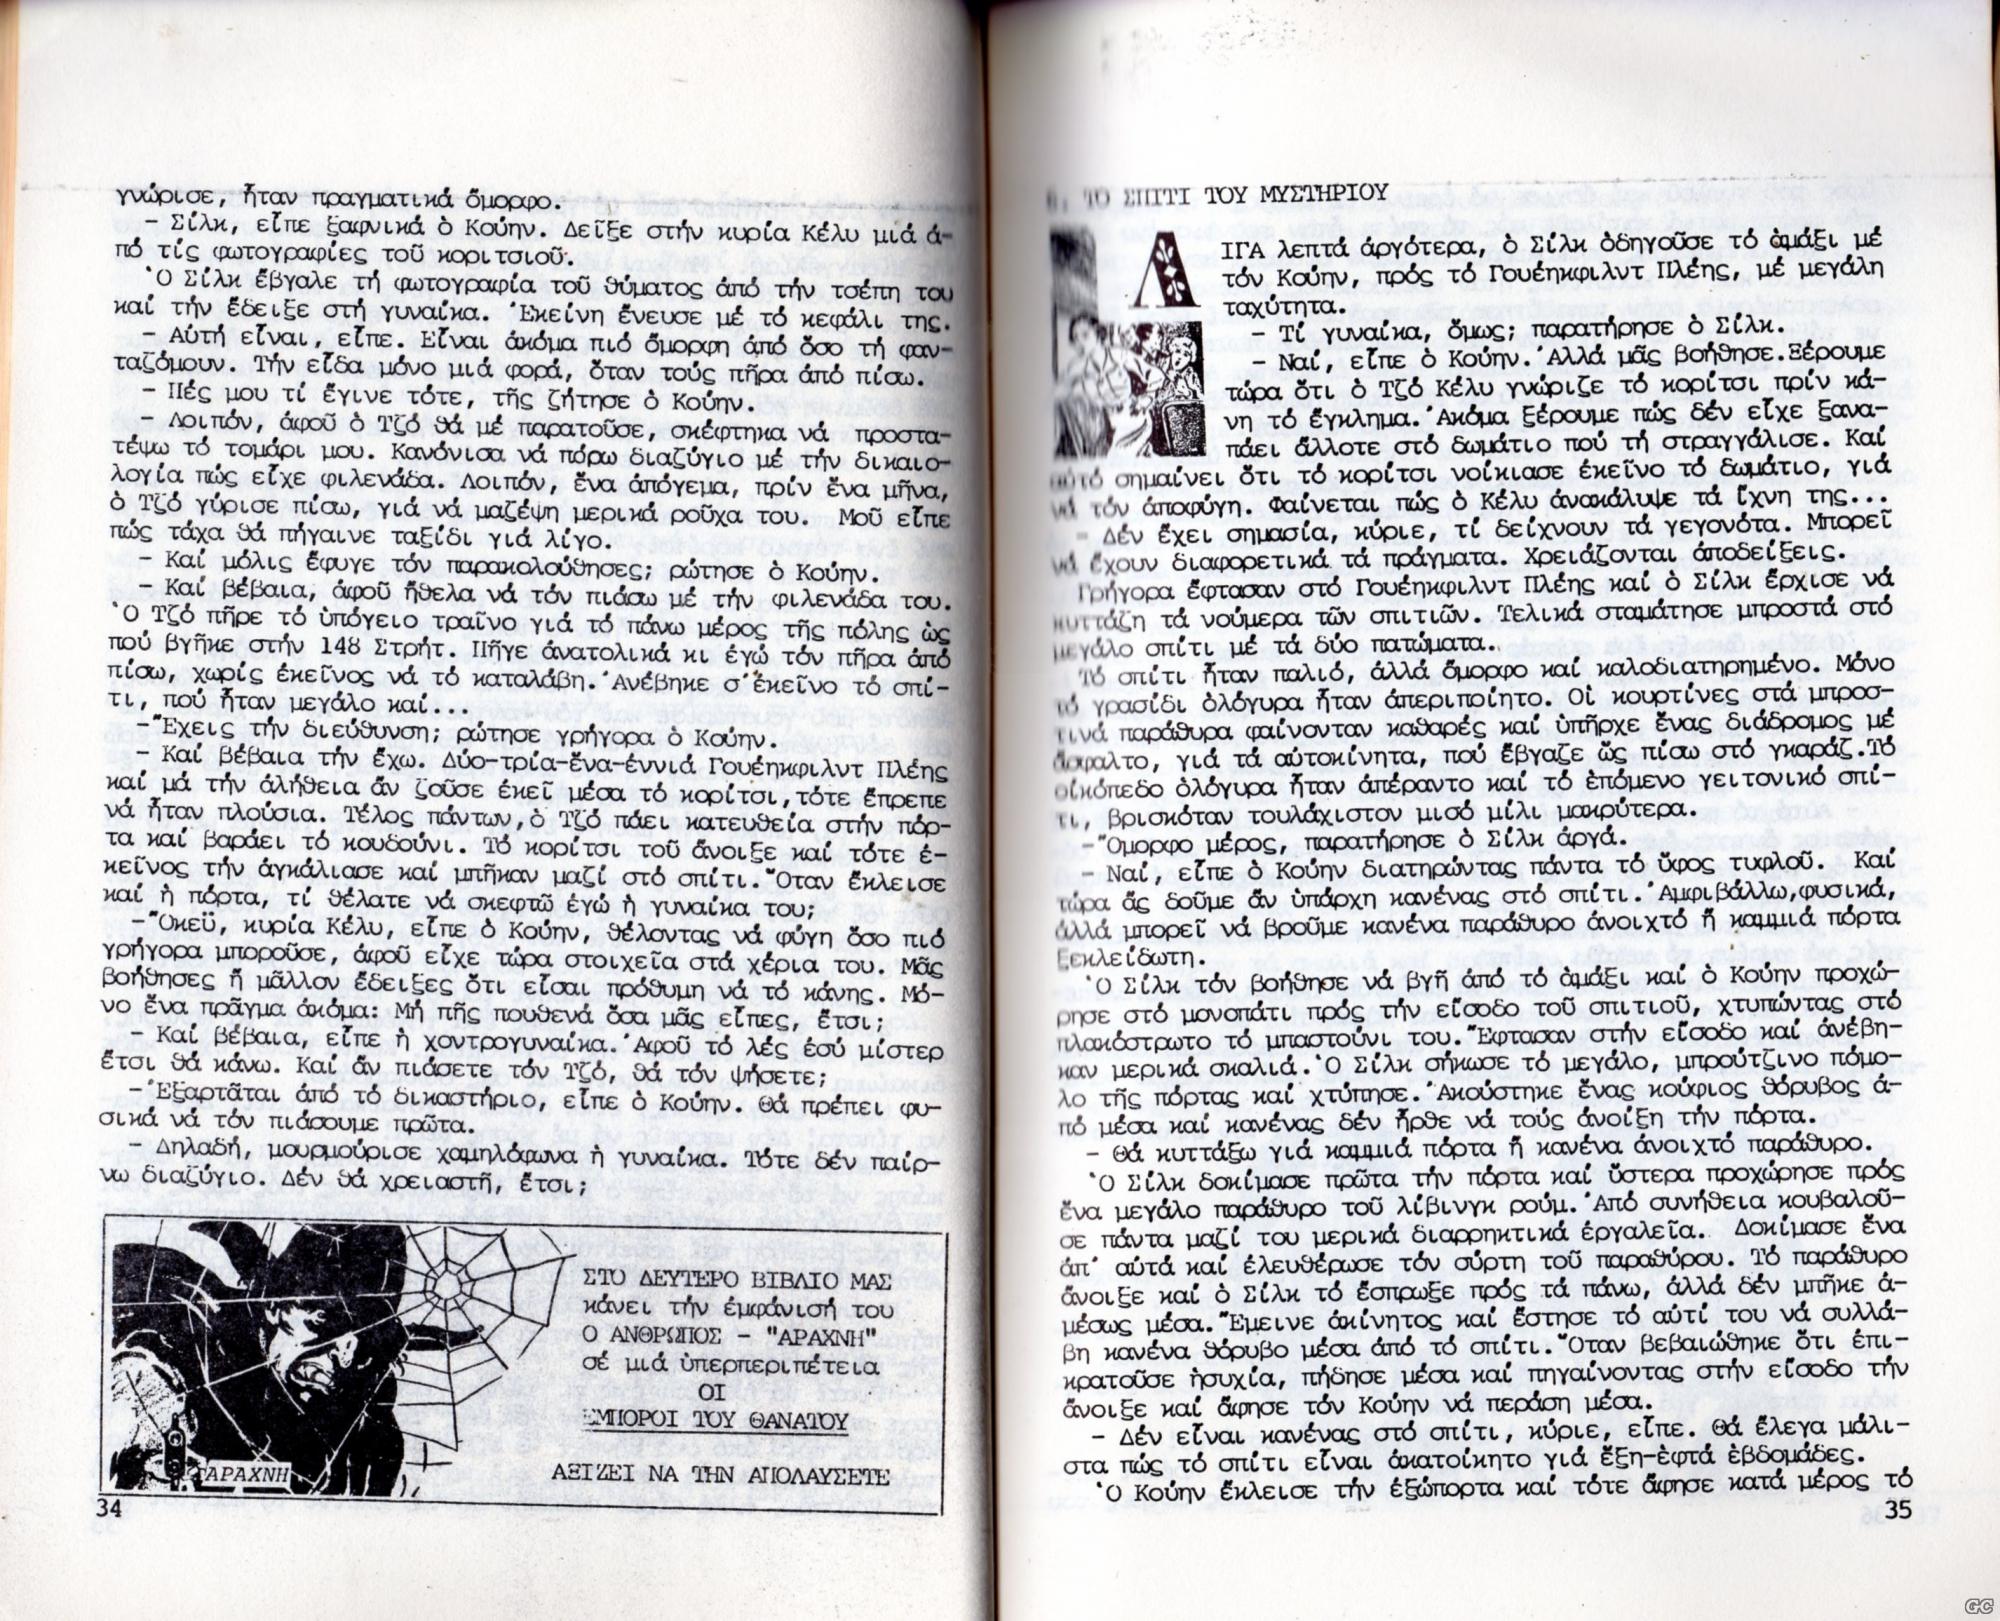 γνώρισε, ἦταν πραγματικά ὄμορφο.
– Σίλκ, εἶπε ξαφνικά ὁ Κούην. Δεῖξε στήν κυρία Κέλυ μιά ἀ-
πό τίς φωτογραφίες τοῦ κοριτσιοῦ.
Ὁ Σίλκ ἔβγαλε τή φωτογραφία τοῦ θύματος ἀπό τήν τσέπη του
καί τήν ἔδειξε στή γυναίκα. Ἐκείνη ἔνευσε μέ τό κεφάλι της.
– Αὐτή εἶναι, εἶπε. Εἶναι ἀκόμα πιό ὄμορφη ἀπό ὅσο τή φαν-
ταζόμουν. Τήν εἶδα μόνο μιά φορά, ὅταν τούς πῆρα ἀπό πίσω.
– Πές μου τί ἔγινε τότε, τῆς ζήτησε ὁ Κούην.
– Λοιπόν, ἀφοῦ ὁ Τζό θά μέ παρατοῦσε, σκέφτηκα νά προστα-
τέψω τό τομάρι μου. Κανόνισα νά πάρω διαζύγιο μέ τήν δικαιο-
λογία πώς εἶχε φιλενάδα. Λοιπόν, ἕνα ἀπόγεμα, πρίν ἕνα μῆνα,
ὁ Τζό γύρισε πίσω, γιά νά μαζέψη μερικά ροῦχα του. Μοῦ εἶπε
πώς τάχα θά πήγαινε ταξίδι γιά λίγο.
– Καί μόλις ἔφυγε τόν παρακολούθησες; ρώτησε ὁ Κούην.
– Καί βέβαια, ἀφοῦ ἤθελα νά τόν πιάσω μέ τήν φιλενάδα του.
Ὁ Τζό πῆρε τό ὑπόγειο τραῖνο γιά τό πάνω μέρος τῆς πόλης ὡς
πού βγῆκε στήν 148 Στρήτ. Πῆγε ἀνατολικά κι ἐγώ τόν πῆρα ἀπό
πίσω, χωρίς ἐκεῖνος νά τό καταλάβη. Ἀνέβηκε σ' ἐκεῖνο τό σπί-
τι, πού ἦταν μεγάλο καί...
– Ἔχεις τήν διεύθυνση; ρώτησε γρήγορα ὁ Κούην.
– Καί βέβαια τήν ἔχω. Δύο-τρία-ἕνα-ἐννιά Γουέηκφιλντ Πλέης
καί μά τήν ἀλήθεια ἄν ζοῦσε ἐκεῖ μέσα τό κορίτσι, τότε ἔπρεπε
νά ἦταν πλούσια. Τέλος πάντων, ὁ Τζό πάει κατευθεία στήν πόρ-
τα καί βαράει τό κουδούνι. Τό κορίτσι τοῦ ἄνοιξε καί τότε ἐ-
κεῖνος τήν ἀγκάλιασε καί μπῆκαν μαζί στό σπίτι. Ὅταν ἔκλεισε
καί ἡ πόρτα, τί θέλατε νά σκεφτῶ ἐγώ ἡ γυναίκα του;
– Ὀκεϋ, κυρία Κέλυ, εἶπε ὁ Κούην, θέλοντας νά φύγη ὅσο πιό
γρήγορα μποροῦσε, ἀφοῦ εἶχε τώρα στοιχεῖα στά χέρια του. Μᾶς
βοήθησες ἤ μᾶλλον ἔδειξες ὅτι εἶσαι πρόθυμη νά τό κάνης. Μό-
νο ἕνα πρᾶγμα ἀκόμα: Μή πῆς πουθενά ὅσα μᾶς εἶπες, ἔτσι;
– Καί βέβαια, εἶπε ἡ χοντρογυναίκα. Ἀφοῦ τό λές ἐσύ μίστερ
ἔτσι θά κάνω. Καί ἄν πιάσετε τόν Τζό, θά τόν ψήσετε;
– Ἐξαρτᾶται ἀπό τό δικαστήριο, εἶπε ὁ Κούην. Θά πρέπει φυ-
σικά νά τόν πιάσουμε πρῶτα.
– Δηλαδή, μουρμούρισε χαμηλόφωνα ἡ γυναίκα. Τότε δέν παίρ-
νω διαζύγιο. Δέν θά χρειαστῆ, ἔτσι;
ΣΤΟ ΔΕΥΤΕΡΟ ΒΙΒΛΙΟ ΜΑΣ
κάνει τήν ἐμφάνισή του
Ο ΑΝΘΡΩΠΟΣ – "ΑΡΑΧΝΗ"
σέ μιά ὑπερπεριπέτεια
ΟΙ
ΕΜΠΟΡΟΙ ΤΟΥ ΘΑΝΑΤΟΥ
ΑΞΙΖΕΙ ΝΑ ΤΗΝ ΑΠΟΛΑΥΣΕΤΕ
ΑΡΑΧΝΗ
34
6. ΤΟ ΣΠΙΤΙ ΤΟΥ ΜΥΣΤΗΡΙΟΥ
ΛΙΓΑ λεπτά ἀργότερα, ὁ Σίλκ ὁδηγοῦσε τό ἁμάξι μέ
τόν Κούην, πρός τό Γουέηκφιλντ Πλέης, μέ μεγάλη
ταχύτητα.
– Τί γυναίκα, ὅμως; παρατήρησε ὁ Σίλκ.
– Ναί, εἶπε ὁ Κούην. Ἀλλά μᾶς βοήθησε. Ξέρουμε
τώρα ὅτι ὁ Τζό Κέλυ γνώριζε τό κορίτσι πρίν κά-
νη τό ἔγκλημα. Ἀκόμα ξέρουμε πώς δέν εἶχε ξανα-
πάει ἄλλοτε στό δωμάτιο πού τή στραγγάλισε. Καί
αὐτό σημαίνει ὅτι τό κορίτσι νοίκιασε ἐκεῖνο τό δωμάτιο, γιά
νά τόν ἀποφύγη. Φαίνεται πώς ὁ Κέλυ ἀνακάλυψε τά ἴχνη της...
– Δέν ἔχει σημασία, κύριε, τί δείχνουν τά γεγονότα. Μπορεῖ
νά ἔχουν διαφορετικά τά πράγματα. Χρειάζονται ἀποδείξεις.
Γρήγορα ἔφτασαν στό Γουέηκφιλντ Πλέης καί ὁ Σίλκ ἔρχισε νά
κυττάζη τά νούμερα τῶν σπιτιῶν. Τελικά σταμάτησε μπροστά στό
μεγάλο σπίτι μέ τά δύο πατώματα.
Τό σπίτι ἦταν παλιό, ἀλλά ὄμορφο καί καλοδιατηρημένο. Μόνο
τό γρασίδι ὁλόγυρα ἦταν ἀπεριποίητο. Οἱ κουρτίνες στά μπροσ-
τινά παράθυρα φαίνονταν καθαρές καί ὑπῆρχε ἕνας διάδρομος μέ
ἄσφαλτο, γιά τά αὐτοκίνητα, πού ἔβγαζε ὥς πίσω στό γκαράζ. Τό
οἰκόπεδο ὁλόγυρα ἦταν ἀπέραντο καί τό ἑπόμενο γειτονικό σπί-
τι, βρισκόταν τουλάχιστον μισό μίλι μακρύτερα.
– Ὄμορφο μέρος, παρατήρησε ὁ Σίλκ ἀργά.
– Ναί, εἶπε ὁ Κούην διατηρώντας πάντα τό ὕφος τυφλοῦ. Καί
τώρα ἄς δοῦμε ἄν ὑπάρχη κανένας στό σπίτι. Ἀμφιβάλλω, φυσικά,
ἀλλά μπορεῖ νά βροῦμε κανένα παράθυρο ἀνοιχτό ἤ καμμιά πόρτα
ξεκλείδωτη.
Ὁ Σίλκ τόν βοήθησε νά βγῆ ἀπό τό ἁμάξι καί ὁ Κούην προχώ-
ρησε στό μονοπάτι πρός τήν εἴσοδο τοῦ σπιτιοῦ, χτυπώντας στό
πλακόστρωτο τό μπαστούνι του. Ἔφτασαν στήν εἴσοδο καί ἀνέβη-
καν μερικά σκαλιά. Ὁ Σίλκ σήκωσε τό μεγάλο, μπρούτζινο πόμο-
λο τῆς πόρτας καί χτύπησε. Ἀκούστηκε ἕνας κούφιος θόρυβος ἀ-
πό μέσα καί κανένας δέν ἦρθε νά τούς ἀνοίξη τήν πόρτα.
– Θά κυττάξω γιά καμμιά πόρτα ἤ κανένα ἀνοιχτό παράθυρο.
Ὁ Σίλκ δοκίμασε πρῶτα τήν πόρτα καί ὕστερα προχώρησε πρός
ἕνα μεγάλο παράθυρο τοῦ λίβινγκ ρούμ. Ἀπό συνήθεια κουβαλοῦ-
σε πάντα μαζί του μερικά διαρρηκτικά ἐργαλεῖα. Δοκίμασε ἕνα
ἀπ' αὐτά καί ἐλευθέρωσε τόν σύρτη τοῦ παραθύρου. Τό παράθυρο
ἄνοιξε καί ὁ Σίλκ τό ἔσπρωξε πρός τά πάνω, ἀλλά δέν μπῆκε ἀ-
μέσως μέσα. Ἔμεινε ἀκίνητος καί ἔστησε τό αὐτί του νά συλλά-
βη κανένα θόρυβο μέσα ἀπό τό σπίτι. Ὅταν βεβαιώθηκε ὅτι ἐπι-
κρατοῦσε ἡσυχία, πήδησε μέσα καί πηγαίνοντας στήν εἴσοδο τήν
ἄνοιξε καί ἄφησε τόν Κούην νά περάση μέσα.
– Δέν εἶναι κανένας στό σπίτι, κύριε, εἶπε. Θά ἔλεγα μάλι-
στα πώς τό σπίτι εἶναι ἀκατοίκητο γιά ἕξη-ἑφτά ἑβδομάδες.
Ὁ Κούην ἔκλεισε τήν ἐξώπορτα καί τότε ἄφησε κατά μέρος τό
35
GC